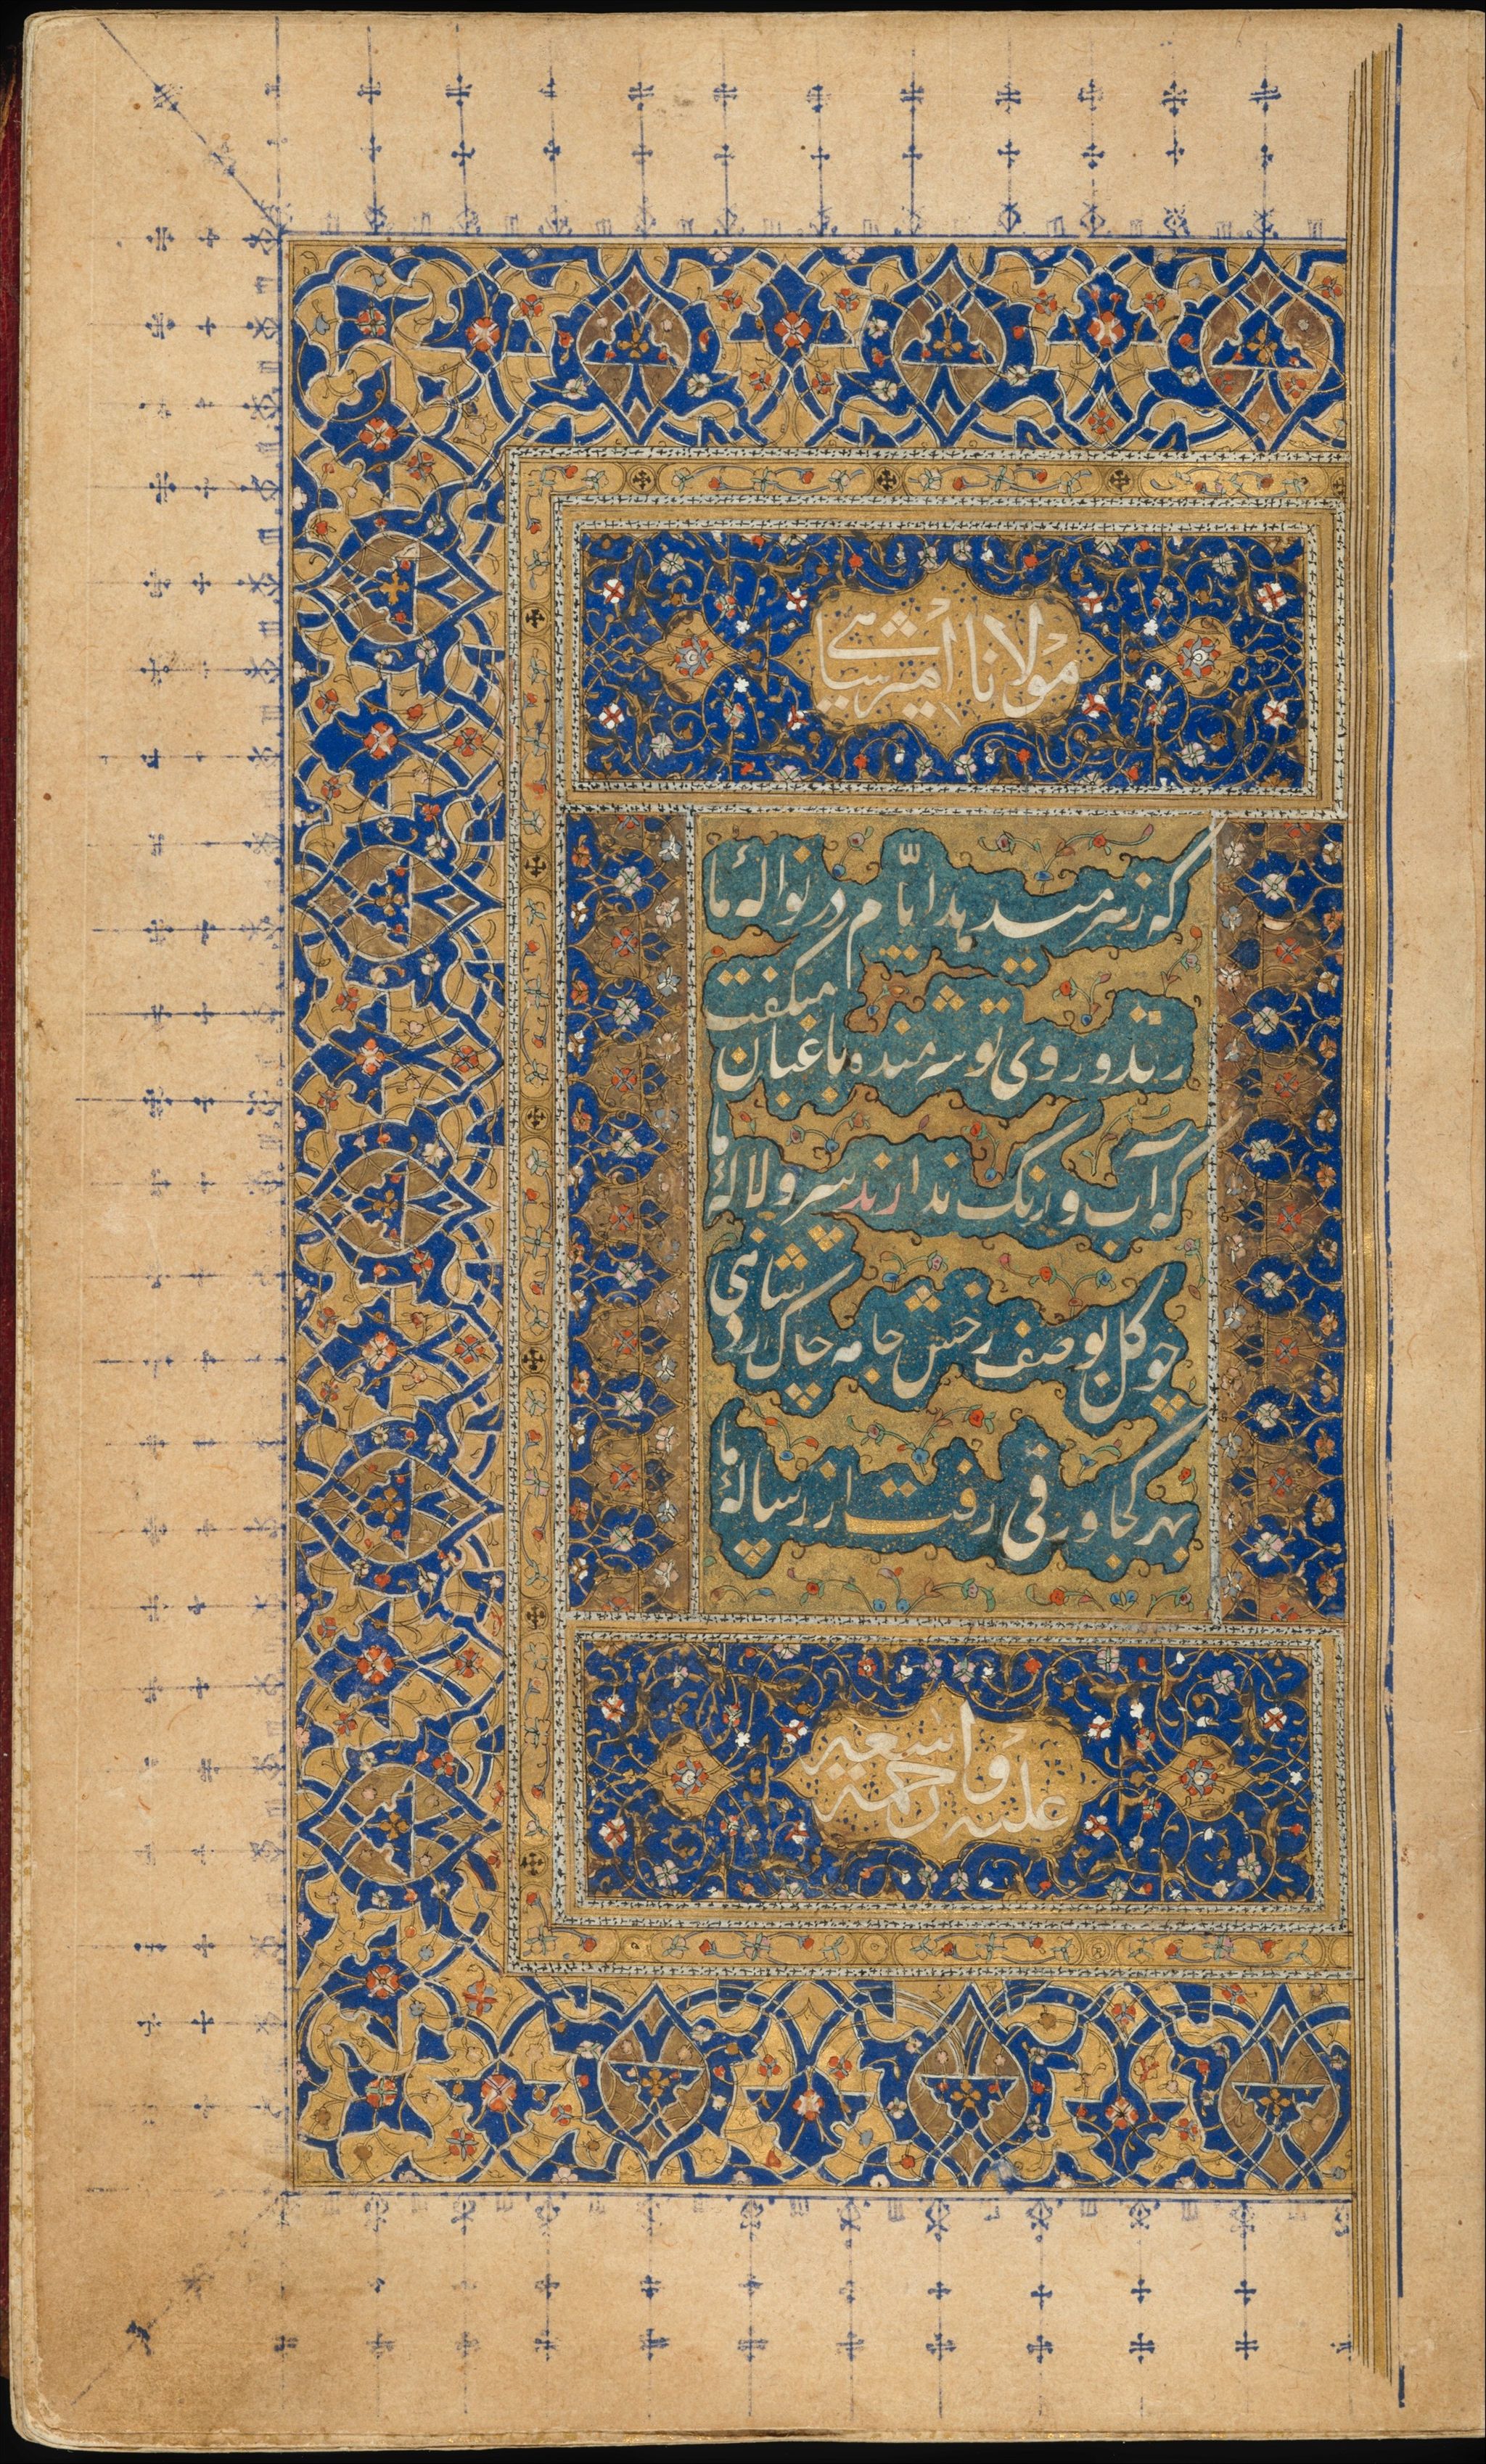 مولانا امیر شاهی
که زهر میدهد ایام در نوالهٔ ما
ز قد و روی تو شرمنده باغبان میگفت
که آب و رنگ ندارند سرو و لالهٔ ما
چو گل بوصف رخش جامه چاک زد شاهی
بهر کجا ورقی رفت از رسالهٔ ما
علیه